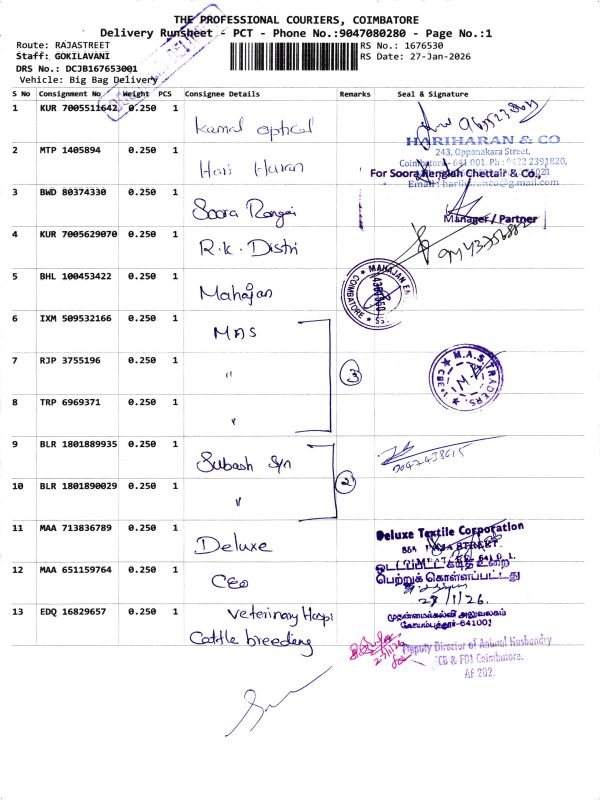 THE PROFESSIONAL COURIERS, COIMBATORE
Delivery Runsheet - PCT - Phone No.:9047080280 - Page No.:1
Route: RAJASTREET
Staff: GOKILAVANI
DRS No.: DCJB167653001
Vehicle: Big Bag Delivery
RS No.: 1676530
RS Date: 27-Jan-2026
S No Consignment No Weight PCS Consignee Details Remarks Seal & Signature
1 KUR 7005511642 0.250 1 Kamal optical
2 MTP 1405894 0.250 1 Hari Haran
HARIHARAN & CO
243, Oppanakara Street,
Coimbatore - 641 001. Ph : 0422 2391820,
For Soora Rengiah Chettair & Co.,
Email : hariharanco@gmail.com
3 BWD 80374330 0.250 1 Soora Rangai
Manager / Partner
4 KUR 7005629070 0.250 1 R.K. Distri
5 BHL 100453422 0.250 1 Mahajan
MAHAJAN
COIMBATORE
6 IXM 509532166 0.250 1 MAS
7 RJP 3755196 0.250 1 " 3
M.A.S. TRADERS.
CBE
8 TRP 6969371 0.250 1 "
9 BLR 1801889935 0.250 1 Subash S/n
9047438615
10 BLR 1801890029 0.250 1 " 2
11 MAA 713836789 0.250 1 Deluxe
Deluxe Textile Corporation
12 MAA 651159764 0.250 1 CEO
பெற்றுக் கொள்ளப்பட்டது
27/1/26.
முதன்மைக்கல்வி அலுவலகம்
கோயம்புத்தூர்-641001
13 EDQ 16829657 0.250 1 Veterinary Hospi
Cattle breeding
27/1/26
Deputy Director of Animal Husbandry
Coimbatore.